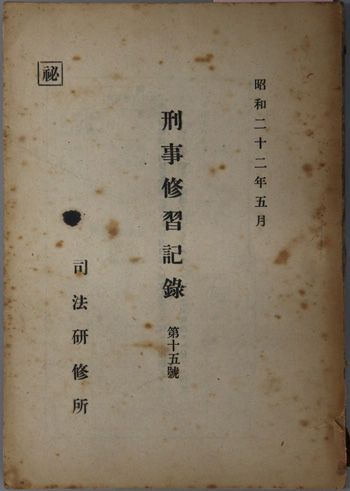 昭和二十二年五月
刑事修習記錄 第十五號
司法研修所
祕